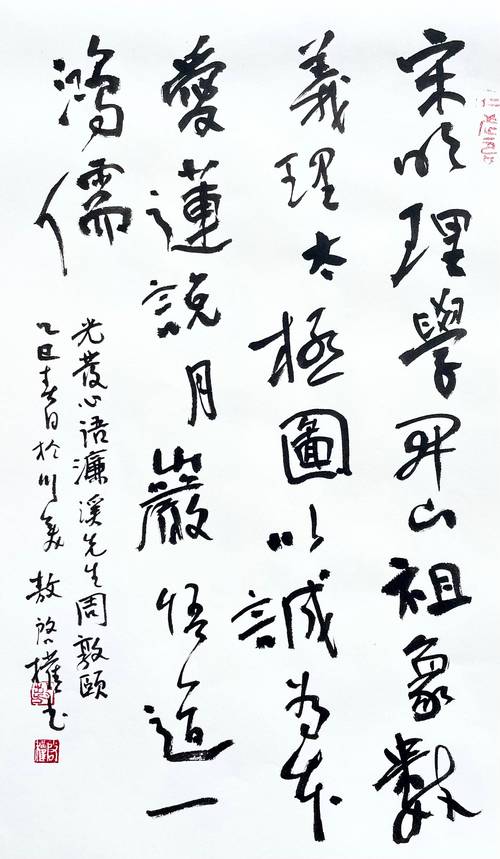 宋明理學开山祖象數
義理太極圖以誠為本
愛蓮說月巖悟道一
鴻儒
光發心语濂溪先生周敦頤
乙巳春日於川美敖启權书